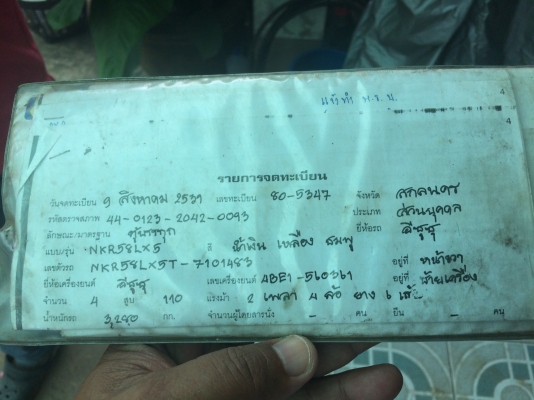 แจ้งทำ พ.ร.บ.
4
4
รายการจดทะเบียน
วันจดทะเบียน 9 สิงหาคม 2531 เลขทะเบียน 80-5347 จังหวัด สกลนคร
รหัสตรวจสภาพ 44-0123-2042-0093 ประเภท ส่วนบุคคล
ลักษณะ/มาตรฐาน กระบะบรรทุก ยี่ห้อรถ อีซูซุ
แบบ/รุ่น NKR58LX5 สี น้ำเงิน เหลือง ชมพู
เลขตัวรถ NKR58LX5T-7101483 อยู่ที่ หน้าขวา
ยี่ห้อเครื่องยนต์ อีซูซุ เลขเครื่องยนต์ 4BE1-560361 อยู่ที่ ซ้ายเครื่อง
จำนวน 4 สูบ 110 แรงม้า 2 เพลา 4 ล้อ ยาง 6 เส้น
น้ำหนักรถ 3,280 กก. จำนวนผู้โดยสารนั่ง - คน ยืน - คน